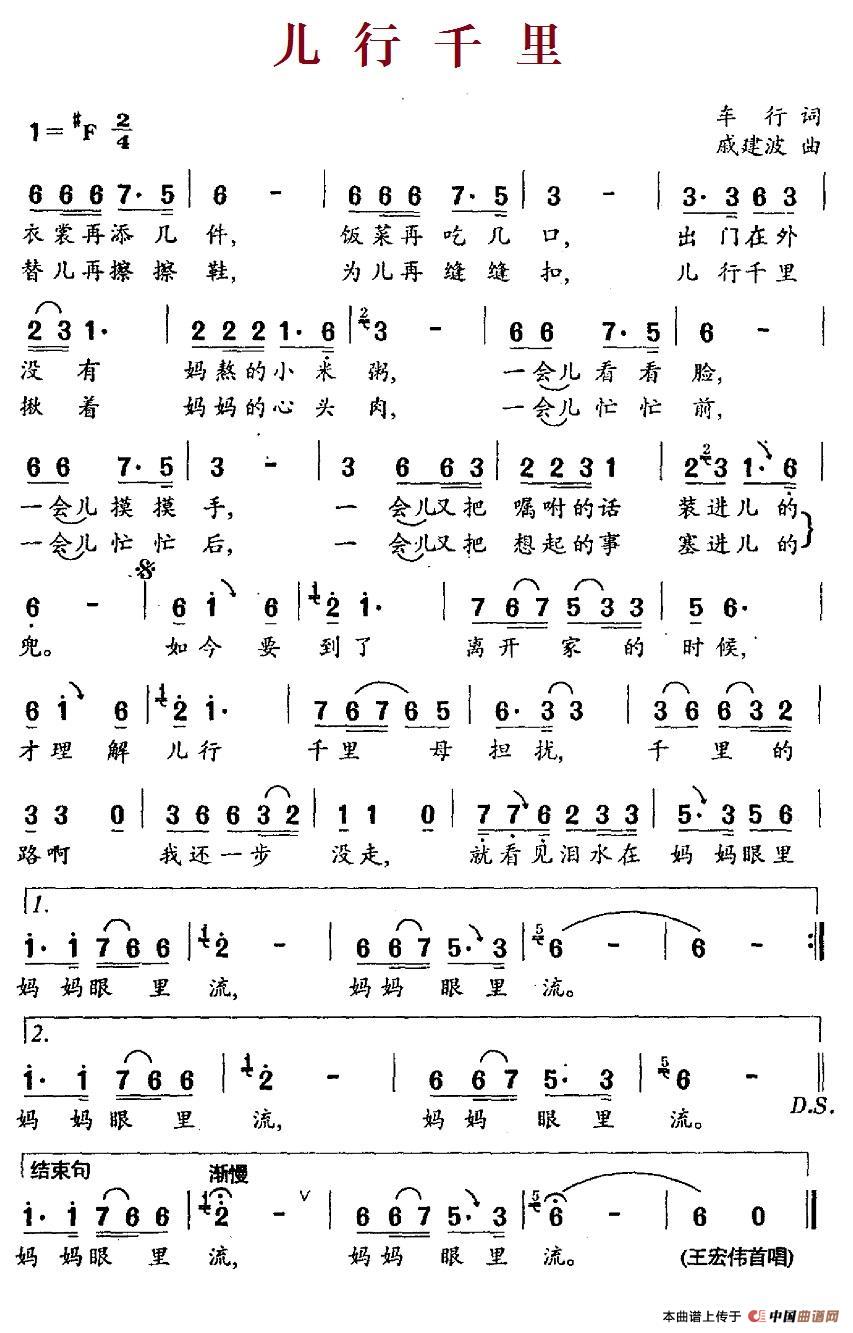 儿行千里
1=#F 2/4
车行词
戚建波曲
6 6 6 7· 5 | 6 - | 6 6 6 7· 5 | 3 - | 3· 3 6 3 |
衣裳再添几件, 饭菜再吃几口, 出门在外
替儿再擦擦鞋, 为儿再缝缝扣, 儿行千里
2 3 1· | 2 2 2 1· 6 | 2 3 - | 6 6 7· 5 | 6 - |
没有 妈熬的小米粥, 一会儿看看脸,
揪着 妈妈的心头肉, 一会儿忙忙前,
6 6 7· 5 | 3 - | 3 6 6 3 | 2 2 3 1 | 2 2 3 1· 6 |
一会儿摸摸手, 一会儿又把嘱咐的话 装进儿的
一会儿忙忙后, 一会儿又把想起的事 塞进儿的
6 - | 6 1 6 | 1 2 1· | 7 6 7 5 3 3 | 5 6· |
兜。 如今要到了 离开家的时候,
6 1 6 | 1 2 1· | 7 6 7 6 5 | 6· 3 3 | 3 6 6 3 2 |
才理解儿行 千里母担扰, 千里的
3 3 0 | 3 6 6 3 2 | 1 1 0 | 7 7 6 2 3 3 | 5· 3 5 6 |
路啊 我还一步没走, 就看见泪水在妈妈眼里
1.
1· 1 7 6 6 | 1 2 - | 6 6 7 5· 3 | 5 6 - | 6 - :|
妈妈眼里流, 妈妈眼里流。
2.
1· 1 7 6 6 | 1 2 - | 6 6 7 5· 3 | 5 6 - ‖
妈妈眼里流, 妈妈眼里流。 D.S.
结束句 渐慢
1· 1 7 6 6 | 1 2 - ∨ | 6 6 7 5· 3 | 5 6 - | 6 0 ‖
妈妈眼里流, 妈妈眼里流。 (王宏伟首唱)
本曲谱上传于 中国曲谱网